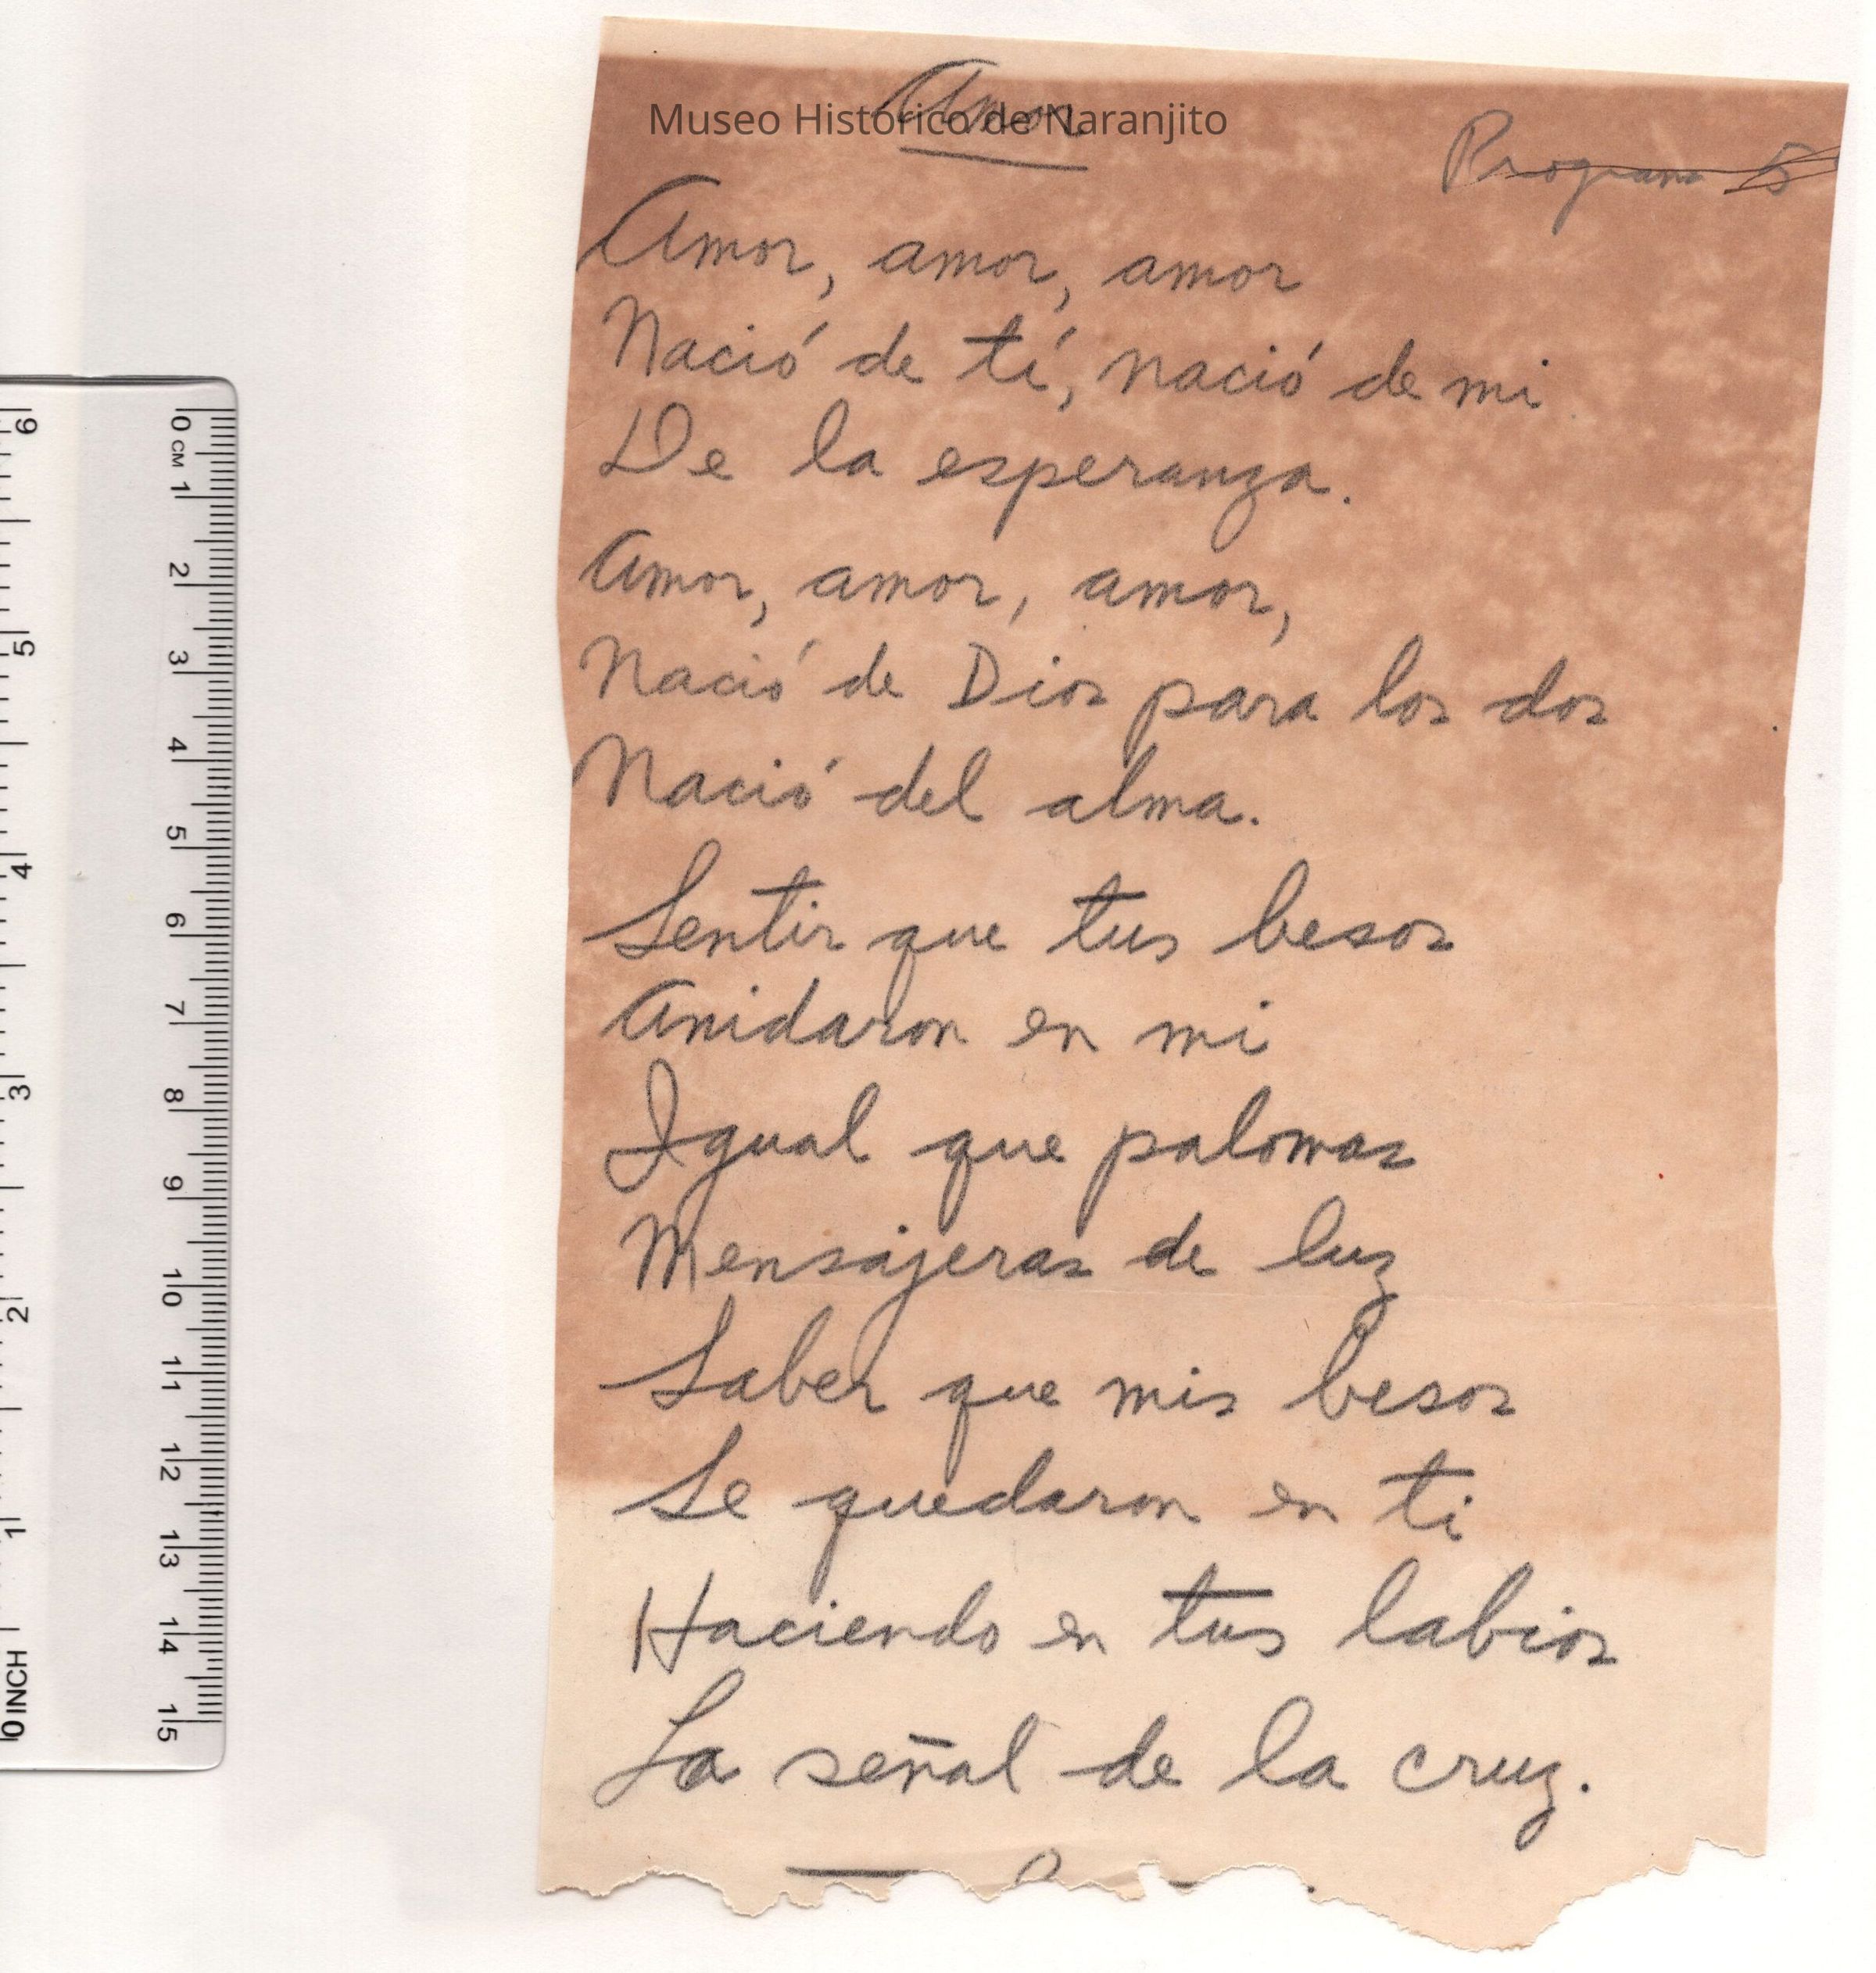 Amor
Museo Histórico de Naranjito
Programa 5
Amor, amor, amor
Nació de tí, nació de mi
De la esperanza.
Amor, amor, amor,
Nació de Dios para los dos
Nació del alma.
Sentir que tus besos
Anidaron en mi
Igual que palomas
Mensajeras de luz
Saber que mis besos
Se quedaron en ti
Haciendo en tus labios
La señal de la cruz.
0 CM 1 2 3 4 5 6 7 8 9 10 11 12 13 14 15
6 5 4 3 2 1 0 INCH